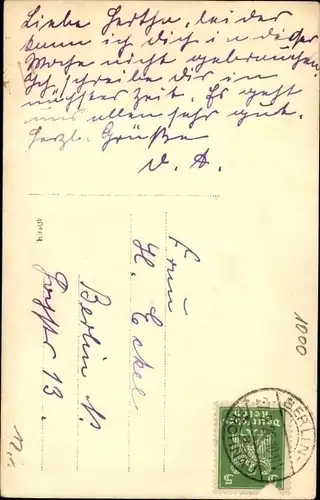 Liebe Hertha, leider
kann ich dich in dieser
Woche nicht gebrauchen.
Ich schreibe dir in
nächster Zeit. Es geht
uns allen sehr gut.
Herzl. Grüße
D. A.
Frau
H. Eckel
Berlin N.
str 13.
1000
BERLIN
Deutsches
Reich
5 5